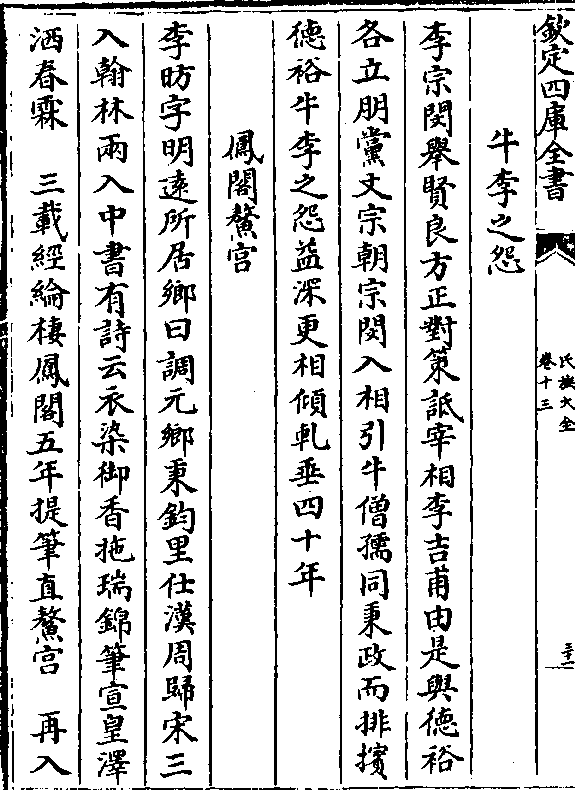 欽定四庫全書
氏族大全
卷十三
三十二
牛李之怨
李宗閔舉賢良方正對策詆宰相李吉甫由是與德裕
各立朋黨文宗朝宗閔入相引牛僧孺同秉政而排擯
德裕牛李之怨益深更相傾軋垂四十年
鳳閣鰲宫
李昉字明遠所居鄉曰調元鄉秉鈞里仕漢周歸宋三
入翰林兩入中書有詩云衣染御香拖瑞錦筆宣皇澤
洒春霖 三載經綸棲鳳閣五年提筆直鰲宫 再入